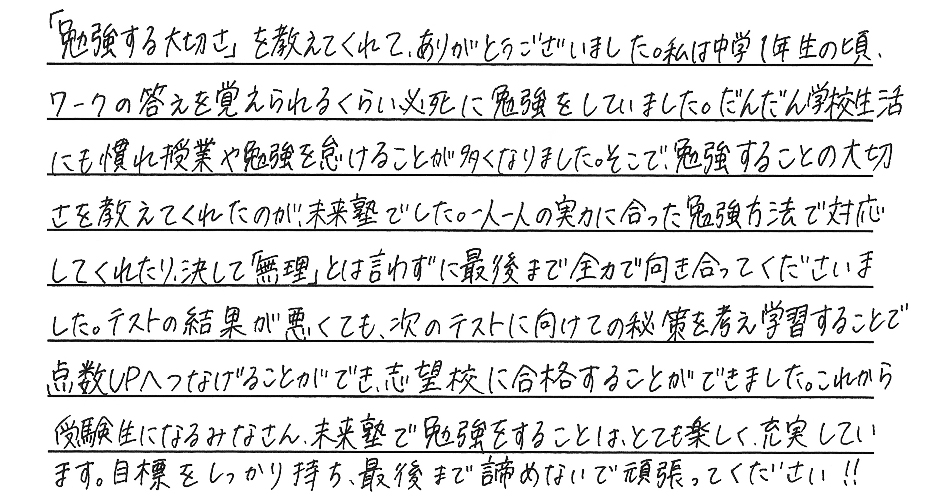 「勉強する大切さ」を教えてくれて、ありがとうございました。私は中学1年生の頃、
ワークの答えを覚えられるくらい必死に勉強をしていました。だんだん学校生活
にも慣れ授業や勉強を怠けることが多くなりました。そこで、勉強することの大切
さを教えてくれたのが、未来塾でした。一人一人の実力に合った勉強方法で対応
してくれたり、決して「無理」とは言わずに最後まで全力で向き合ってくださいま
した。テストの結果が悪くても、次のテストに向けての秘策を考え学習することで
点数UPへつなげることができ、志望校に合格することができました。これから
受験生になるみなさん、未来塾で勉強をすることは、とても楽しく、充実してい
ます。目標をしっかり持ち、最後まで諦めないで頑張ってください!!